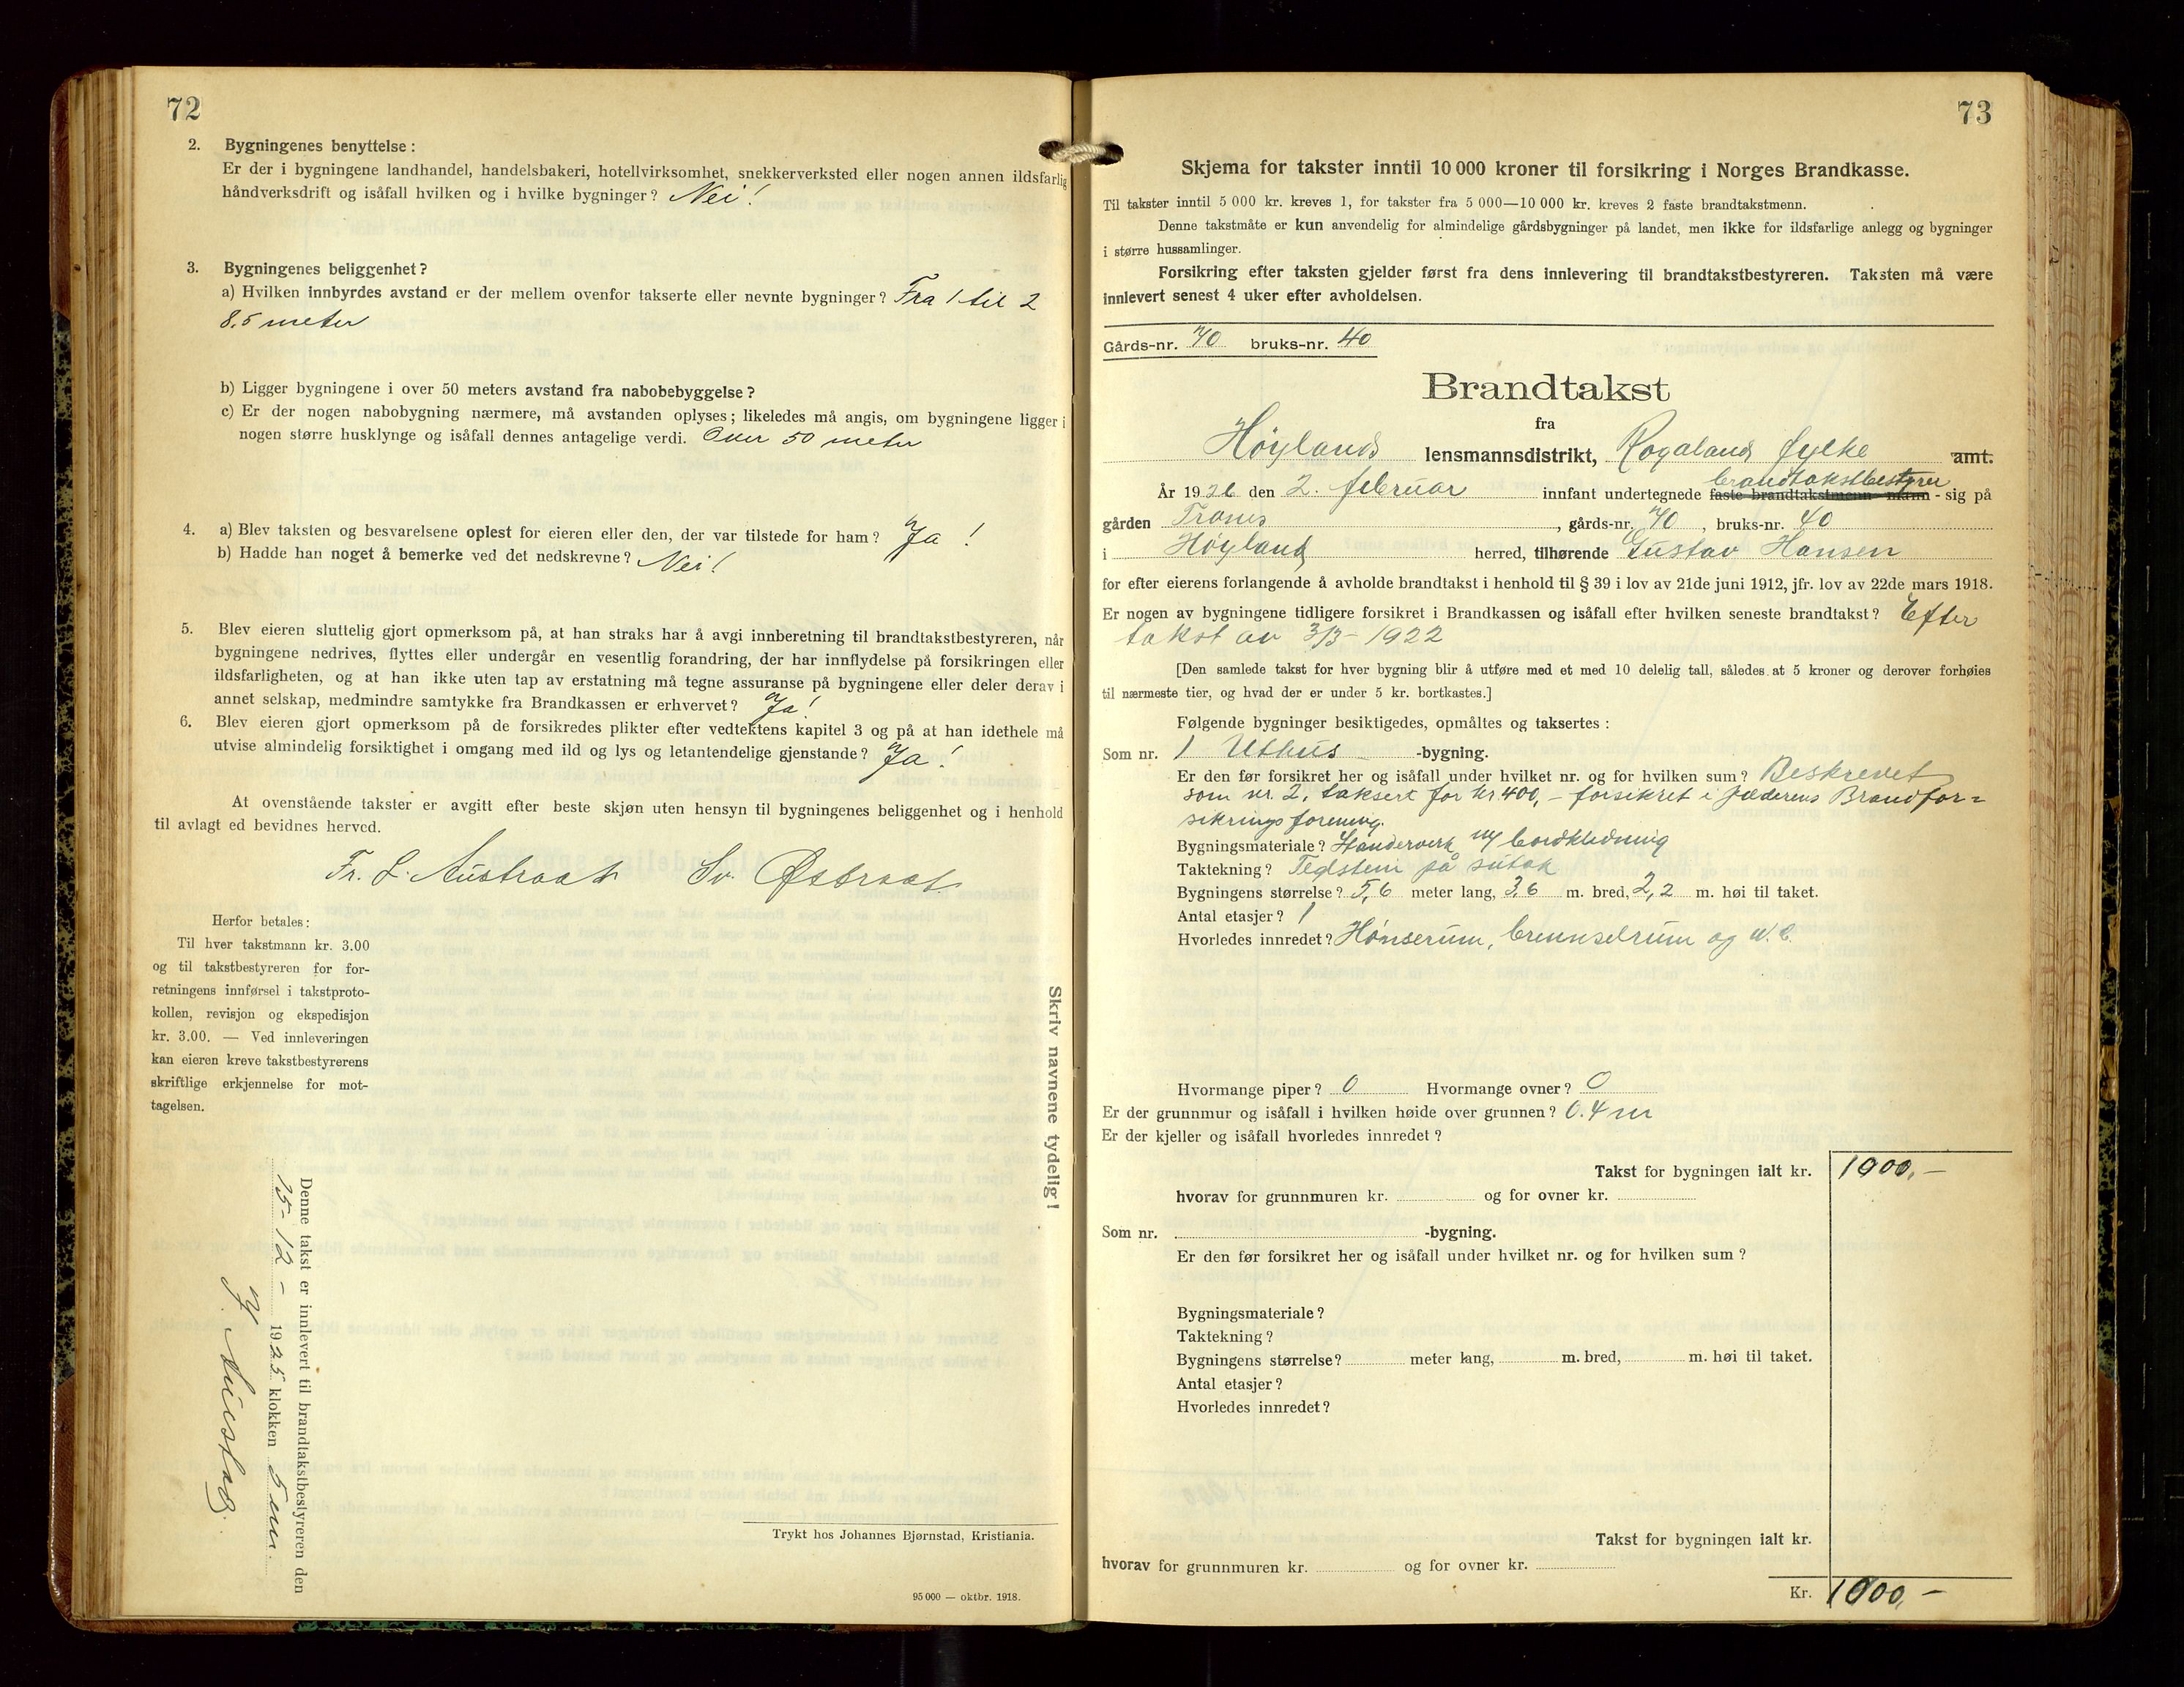 72
2. Bygningenes benyttelse:
Er der i bygningene landhandel, handelsbakeri, hotellvirksomhet, snekkerverksted eller nogen annen ildsfarlig
håndverksdrift og isåfall hvilken og i hvilke bygninger? Nei!
3. Bygningenes beliggenhet?
a) Hvilken innbyrdes avstand er der mellem ovenfor takserte eller nevnte bygninger? Fra 1 til 2
8.5 meter
b) Ligger bygningene i over 50 meters avstand fra nabobebyggelse?
c) Er der nogen nabobygning nærmere, må avstanden oplyses; likeledes må angis, om bygningene ligger i
nogen større husklynge og isåfall dennes antagelige verdi. Over 50 meter
4. a) Blev taksten og besvarelsene oplest for eieren eller den, der var tilstede for ham? Ja!
b) Hadde han noget å bemerke ved det nedskrevne? Nei!
5. Blev eieren sluttelig gjort opmerksom på, at han straks har å avgi innberetning til brandtakstbestyreren, når
bygningene nedrives, flyttes eller undergår en vesentlig forandring, der har innflydelse på forsikringen eller
ildsfarligheten, og at han ikke uten tap av erstatning må tegne assuranse på bygningene eller deler derav i
annet selskap, medmindre samtykke fra Brandkassen er erhvervet? Ja!
6. Blev eieren gjort opmerksom på de forsikredes plikter efter vedtektens kapitel 3 og på at han idethele må
utvise almindelig forsiktighet i omgang med ild og lys og letantendelige gjenstande? Ja!
At ovenstående takster er avgitt efter beste skjøn uten hensyn til bygningenes beliggenhet og i henhold
til avlagt ed bevidnes herved.
Fr. L. Austraat Sv. Østraat
Herfor betales:
Til hver takstmann kr. 3.00
og til takstbestyreren for for-
retningens innførsel i takstproto-
kollen, revisjon og ekspedisjon
kr. 3.00. — Ved innleveringen
kan eieren kreve takstbestyrerens
skriftlige erkjennelse for mot-
tagelsen.
Skriv navnene tydelig!
Denne takst er innlevert til brandtakstbestyreren den
15-12- 1925 klokken 5 em.
Trykt hos Johannes Bjørnstad, Kristiania.
95 000 — oktbr. 1918.
73
Skjema for takster inntil 10 000 kroner til forsikring i Norges Brandkasse.
Til takster inntil 5 000 kr. kreves 1, for takster fra 5 000—10 000 kr. kreves 2 faste brandtakstmenn.
Denne takstmåte er kun anvendelig for almindelige gårdsbygninger på landet, men ikke for ildsfarlige anlegg og bygninger
i større hussamlinger.
Forsikring efter taksten gjelder først fra dens innlevering til brandtakstbestyreren. Taksten må være
innlevert senest 4 uker efter avholdelsen.
Gårds-nr. 70 bruks-nr. 40
Brandtakst
fra
Høylands lensmannsdistrikt, Rogaland fylke amt.
brandtakstbestyrer
År 1926 den 2. februar innfant undertegnede faste brandtakstmenn -mann - sig på
gården Trones, gårds-nr. 70, bruks-nr. 40
i Høyland herred, tilhørende Gustav Hansen
for efter eierens forlangende å avholde brandtakst i henhold til § 39 i lov av 21de juni 1912, jfr. lov av 22de mars 1918.
Er nogen av bygningene tidligere forsikret i Brandkassen og isåfall efter hvilken seneste brandtakst? Efter
takst av 3/3- 1922
[Den samlede takst for hver bygning blir å utføre med et med 10 delelig tall, således at 5 kroner og derover forhøies
til nærmeste tier, og hvad der er under 5 kr. bortkastes.]
Følgende bygninger besiktigedes, opmåltes og taksertes:
Som nr. 1 Uthus -bygning.
Er den før forsikret her og isåfall under hvilket nr. og for hvilken sum? Beskrevet
som nr. 2, taksert for kr. 400,- forsikret i Jæderens Brandfor=
sikringsforening.
Bygningsmateriale? Standerverk m/ bordkledning
Taktekning? Teglstein på sutak
Bygningens størrelse? 5,6 meter lang, 3,6 m. bred, 2,2 m. høi til taket.
Antal etasjer? 1
Hvorledes innredet? Hönserum, brennselrum og W.C.
Hvormange piper? 0 Hvormange ovner? 0
Er der grunnmur og isåfall i hvilken høide over grunnen? 0.4 m
Er der kjeller og isåfall hvorledes innredet?
Takst for bygningen ialt kr. 1000,-
hvorav for grunnmuren kr. og for ovner kr.
Som nr. -bygning.
Er den før forsikret her og isåfall under hvilket nr. og for hvilken sum?
Bygningsmateriale?
Taktekning?
Bygningens størrelse? meter lang, m. bred, m. høi til taket.
Antal etasjer?
Hvorledes innredet?
Takst for bygningen ialt kr.
hvorav for grunnmuren kr. og for ovner kr.
Kr. 1000,-